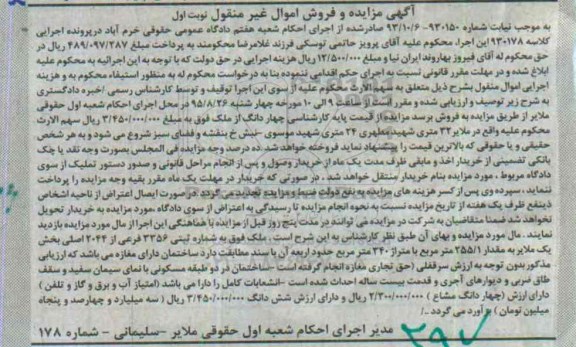 آگهی مزایده و فروش اموال غیر منقول نوبت اول
به موجب نیابت شماره ۹۳۰۱۵۰-۹۳/۱۰/۶ صادرشده از اجرای احکام شعبه هفتم دادگاه عمومی حقوقی خرم آباد درپرونده اجرایی
کلاسه ۹۳۰۱۷۸ این اجرا، محکوم علیه آقای پرویز حاتمی توسکی فرزند غلامرضا محکومند به پرداخت مبلغ ۴۸۹/۰۹۷/۳۸۷ ریال در
حق محکوم له آقای فیروز بهاروند ایران نیا و مبلغ ۱۲/۵۰۰/۰۰۰ ریال هزینه اجرایی در حق دولت که با توجه به این اجرائیه به محکوم علیه
ابلاغ شده و در مهلت مقرر قانونی نسبت به اجرای حکم اقدامی ننموده بنا به درخواست محکوم له به منظور استیفاء محکوم به و هزینه
اجرایی اموال منقول بشرح ذیل متعلق به سهم الارث محکوم علیه از سوی این اجرا توقیف و توسط کارشناس رسمی /خبره دادگستری
به شرح زیر توصیف و ارزیابی شده و مقرر است از ساعت ۹ الی ۱۰ مورخه چهار شنبه ۹۵/۸/۲۶ در محل اجرای احکام شعبه اول حقوقی
ملایر از طریق مزایده به فروش برسد مزایده از قیمت پایه کارشناسی چهار دانگ از ملک فوق به مبلغ ۳/۴۵۰/۰۰۰/۰۰۰ ریال سهم الارث
محکوم علیه واقع در ملایر ۳۲ متری شهید مطهری ۲۴ متری شهید موسوی -نبش خ بنفشه و فضای سبز شروع می شود و به هر شخص
حقیقی و یا حقوقی که بالاترین قیمت را پیشنهاد نماید فروخته خواهد شد. ده درصد وجه مزایده فی المجلس بصورت وجه نقد یا چک
بانکی تضمینی از خریدار اخذ و مابقی ظرف مدت یک ماه از خریدار وصول و پس از انجام مراحل قانونی و صدور دستور تملیک از سوی
دادگاه مربوط ، مورد مزایده بنام خریدار منتقل خواهد شد . در صورتی که خریدار در مهلت یک ماه مقرر بقیه وجه مزایده را پرداخت
ننماید ، سپرده وی پس از کسر هزینه های مزایده به نفع دولت ضبط و مزایده تجدید می گردد. در صورت ایصال اعتراض از ناحیه اشخاص
ذینفع ظرف یک هفته از تاریخ مزایده نسبت به نحوه انجام مزایده تا رسیدگی به اعتراض از سوی دادگاه ،مورد مزایده به خریدار تحویل
نخواهد شد ضمنا متقاضیان به شرکت در مزایده می توانند در مدت پنج روز قبل از مزایده با هماهنگی این اجرا از مال مورد مزایده بازدید
نمایند . مال مورد مزایده و بهای آن طبق نظر کارشناس به این شرح است . ملک فوق به شماره ثبتی ۳۳۵۶ فرعی از ۲۰۴۴ اصلی بخش
یک ملایر به مقدار ۲۵۵/۱ متر مربع با متراژ ۳۴۰ متر مربع حدود اربعه آن با سند مطابقت دارد ساختمان دارای مغازه می باشد که ارزیابی
مذکور بدون توجه به ارزش سرقفلی (حق تجاری مغازه انجام گرفته است -ساختمان در دو طبقه مسکونی با نمای سیمان سفید و سقف
طاق ضربی و دیوارهای آجری و قدمت بیست ساله احداث شده است -انشعابات کامل را دارا می باشد (امتیاز آب و برق و گاز و تلفن )
دارای ارزش (چهار دانگ مشاع ) ۲/۳۰۰/۰۰۰/۰۰۰ ریال و دارای ارزش شش دانگ ۳/۴۵۰/۰۰۰/۰۰۰ ریال ( سه میلیارد و چهارصد و پنجاه
میلیون تومان ) بر آورد می گردد ./
مدیر اجرای احکام شعبه اول حقوقی ملایر -سلیمانی - شماره ۱۷۸